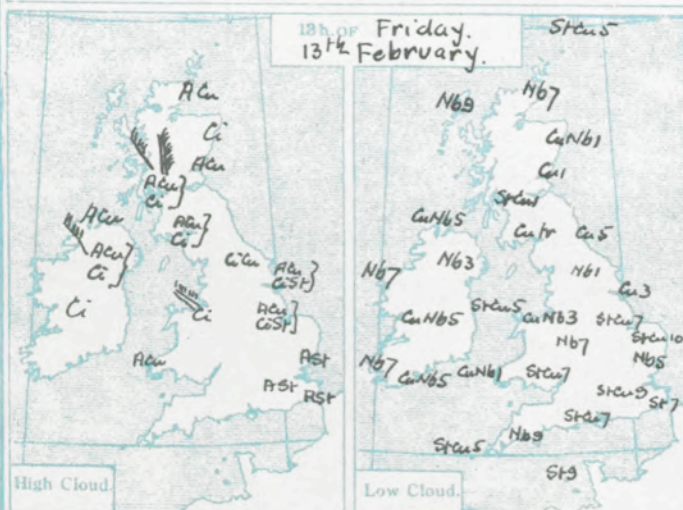 13h OF Friday.
13th February.
ACu
Ci
ACu
ACu }
Ci }
ACu }
Ci }
ACu
ACu }
Ci }
Ci
CiCu
ACu }
CiSt }
Ci
ACu }
CiSt }
ACu
ASt
ASt
ASt
High Cloud.
StCu5
Nb7
Nb9
CuNb1
Cu1
StCu1
CuNb5
Cutr
Cu5
Nb7
Nb3
Nb1
Cu3
StCu5
CuNb5
CuNb3
StCu7
StCu10
Nb7
Nb5
Nb7
CuNb5
CuNb1
StCu7
StCu9
St7
StCu7
Nb9
StCu5
St9
Low Cloud.